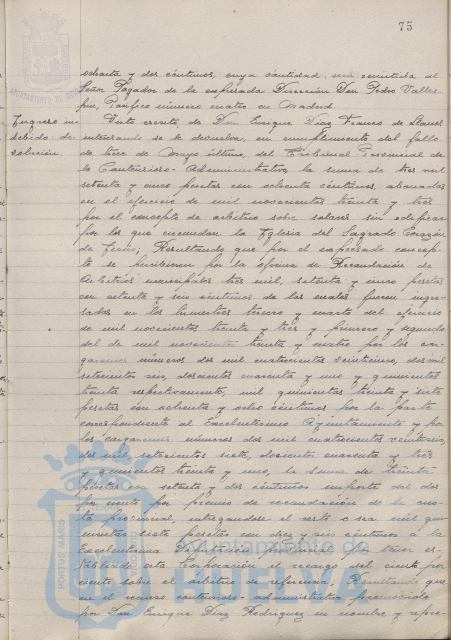 75
AYUNTAMIENTO DE HUELVA
ochenta y dos céntimos, cuya cantidad, será remitida al
Señor Pagador de la expresada Dirección Don Pedro Valles-
pin, Pacífico número cuatro en Madrid.
Ingreso in-
debido de-
volución.
Visto escrito, de Don Enrique Díaz Franco de Llanos
interesando se le devuelva, en cumplimiento del fallo
de trece de Mayo último, del Tribunal Provincial de
lo Contencioso-Administrativo, la suma de tres mil
setenta y cinco pesetas con setenta céntimos, abonadas
en el ejercicio de mil novecientos treinta y tres
por el concepto de arbitrio sobre solares sin edificar
por los que circundan la Iglesia del Sagrado Corazón
de Jesús; Resultando que por el expresado concep-
to se percibieron por la oficina de Recaudación de
Arbitrios municipales tres mil, setenta y cinco pesetas
con setenta y seis céntimos de las cuales fueron ingre-
sadas en los trimestres tercero y cuarto del ejercicio
de mil novecientos treinta y tres y primero y segundo
del de mil novecientos treinta y cuatro por los car-
garemes números dos mil cuatrocientos veinticinco, dos mil
setecientos seis, doscientos cuarenta y uno y quinientos
treinta respectivamente, mil quinientas treinta y siete
pesetas con ochenta y ocho céntimos por la parte
correspondiente al Excelentísimo Ayuntamiento y por
los cargaremes números dos mil cuatrocientos veintiseis,
dos mil, setecientos siete, doscientos cuarenta y tres
y quinientos treinta y uno, la suma de treinta
pesetas con setenta y dos céntimos importe del dos
por ciento por premio de recaudación de la cuo-
ta provincial, entregandose el resto o sea mil qui-
nientas siete pesetas con diez y seis céntimos a la
Excelentísima Diputación provincial, por tener es-
tablecido esta Corporación el recargo del ciento por
ciento sobre el arbitrio de referencia; Resultando que
en el recurso contencioso-administrativo promovido
por Don Enrique Díaz Rodríguez en nombre y repre-
PORTUS MARIS
Ayuntamiento de
HUELVA